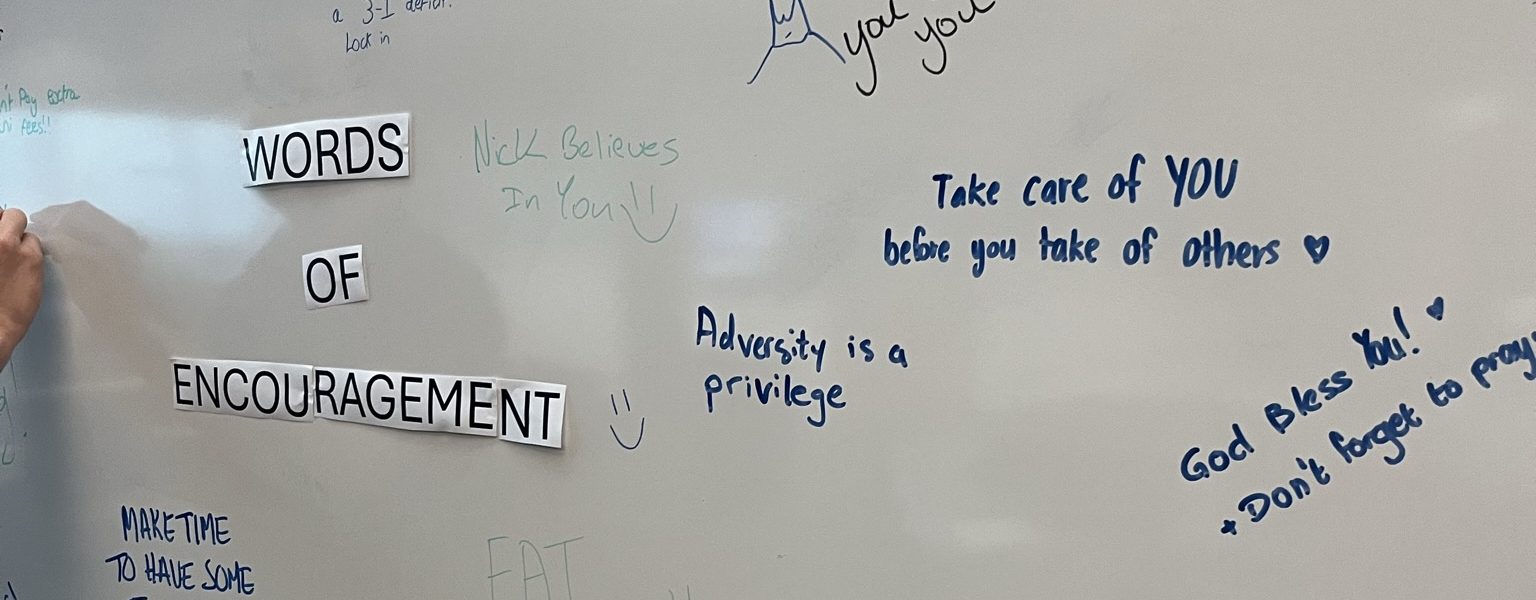 a 3-1 deficit.
Lock in
you
you
Pay extra
fees!!
WORDS
OF
ENCOURAGEMENT
Nick Believes
In You
Take care of YOU
before you take of others
Adversity is a
privilege
God Bless You!
+ Don't forget to pray
MAKE TIME
TO HAVE SOME
EAT